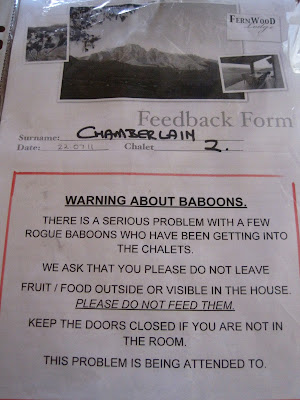 FERNWOOD
Lodge
Feedback Form
Surname: CHAMBERLAIN
Date: 22.07.11 Chalet 2.
WARNING ABOUT BABOONS.
THERE IS A SERIOUS PROBLEM WITH A FEW
ROGUE BABOONS WHO HAVE BEEN GETTING INTO
THE CHALETS.
WE ASK THAT YOU PLEASE DO NOT LEAVE
FRUIT / FOOD OUTSIDE OR VISIBLE IN THE HOUSE.
PLEASE DO NOT FEED THEM.
KEEP THE DOORS CLOSED IF YOU ARE NOT IN
THE ROOM.
THIS PROBLEM IS BEING ATTENDED TO.